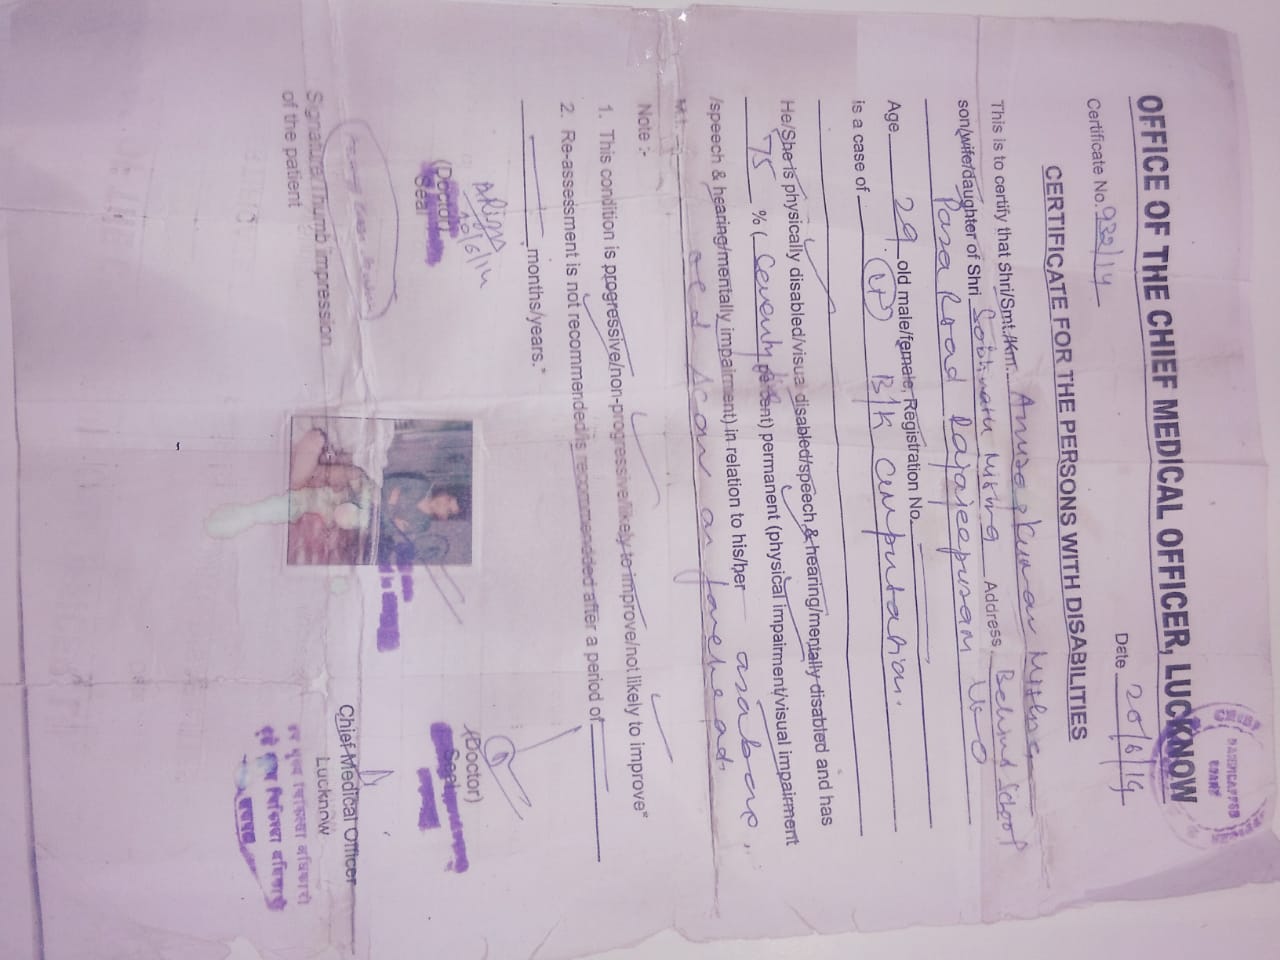 OFFICE OF THE CHIEF MEDICAL OFFICER, LUCKNOW
Certificate No. 932/14 Date 20/6/14
CERTIFICATE FOR THE PERSONS WITH DISABILITIES
This is to certify that Shri/Smt./Km. Kumar Mishra
son/wife/daughter of Shri Mishra Address Behind School
Road Rajajeepuram LKO
Age 29 old male/female, Registration No.
is a case of B/K amputation.
He/She is physically disabled/visual disabled/speech & hearing/mentally disabled and has
75 % ( Seventy percent) permanent (physical impairment/visual impairment
/speech & hearing/mentally impairment) in relation to his/her as above,
M.I. and Scar on forehead.
Note :-
1. This condition is progressive/non-progressive/likely to improve/not likely to improve*
2. Re-assessment is not recommended/is recommended after a period of
months/years.*
20/6/14
(Doctor) (Doctor)
Seal Seal
Signature/Thumb impression
of the patient
Chief Medical Officer
Lucknow